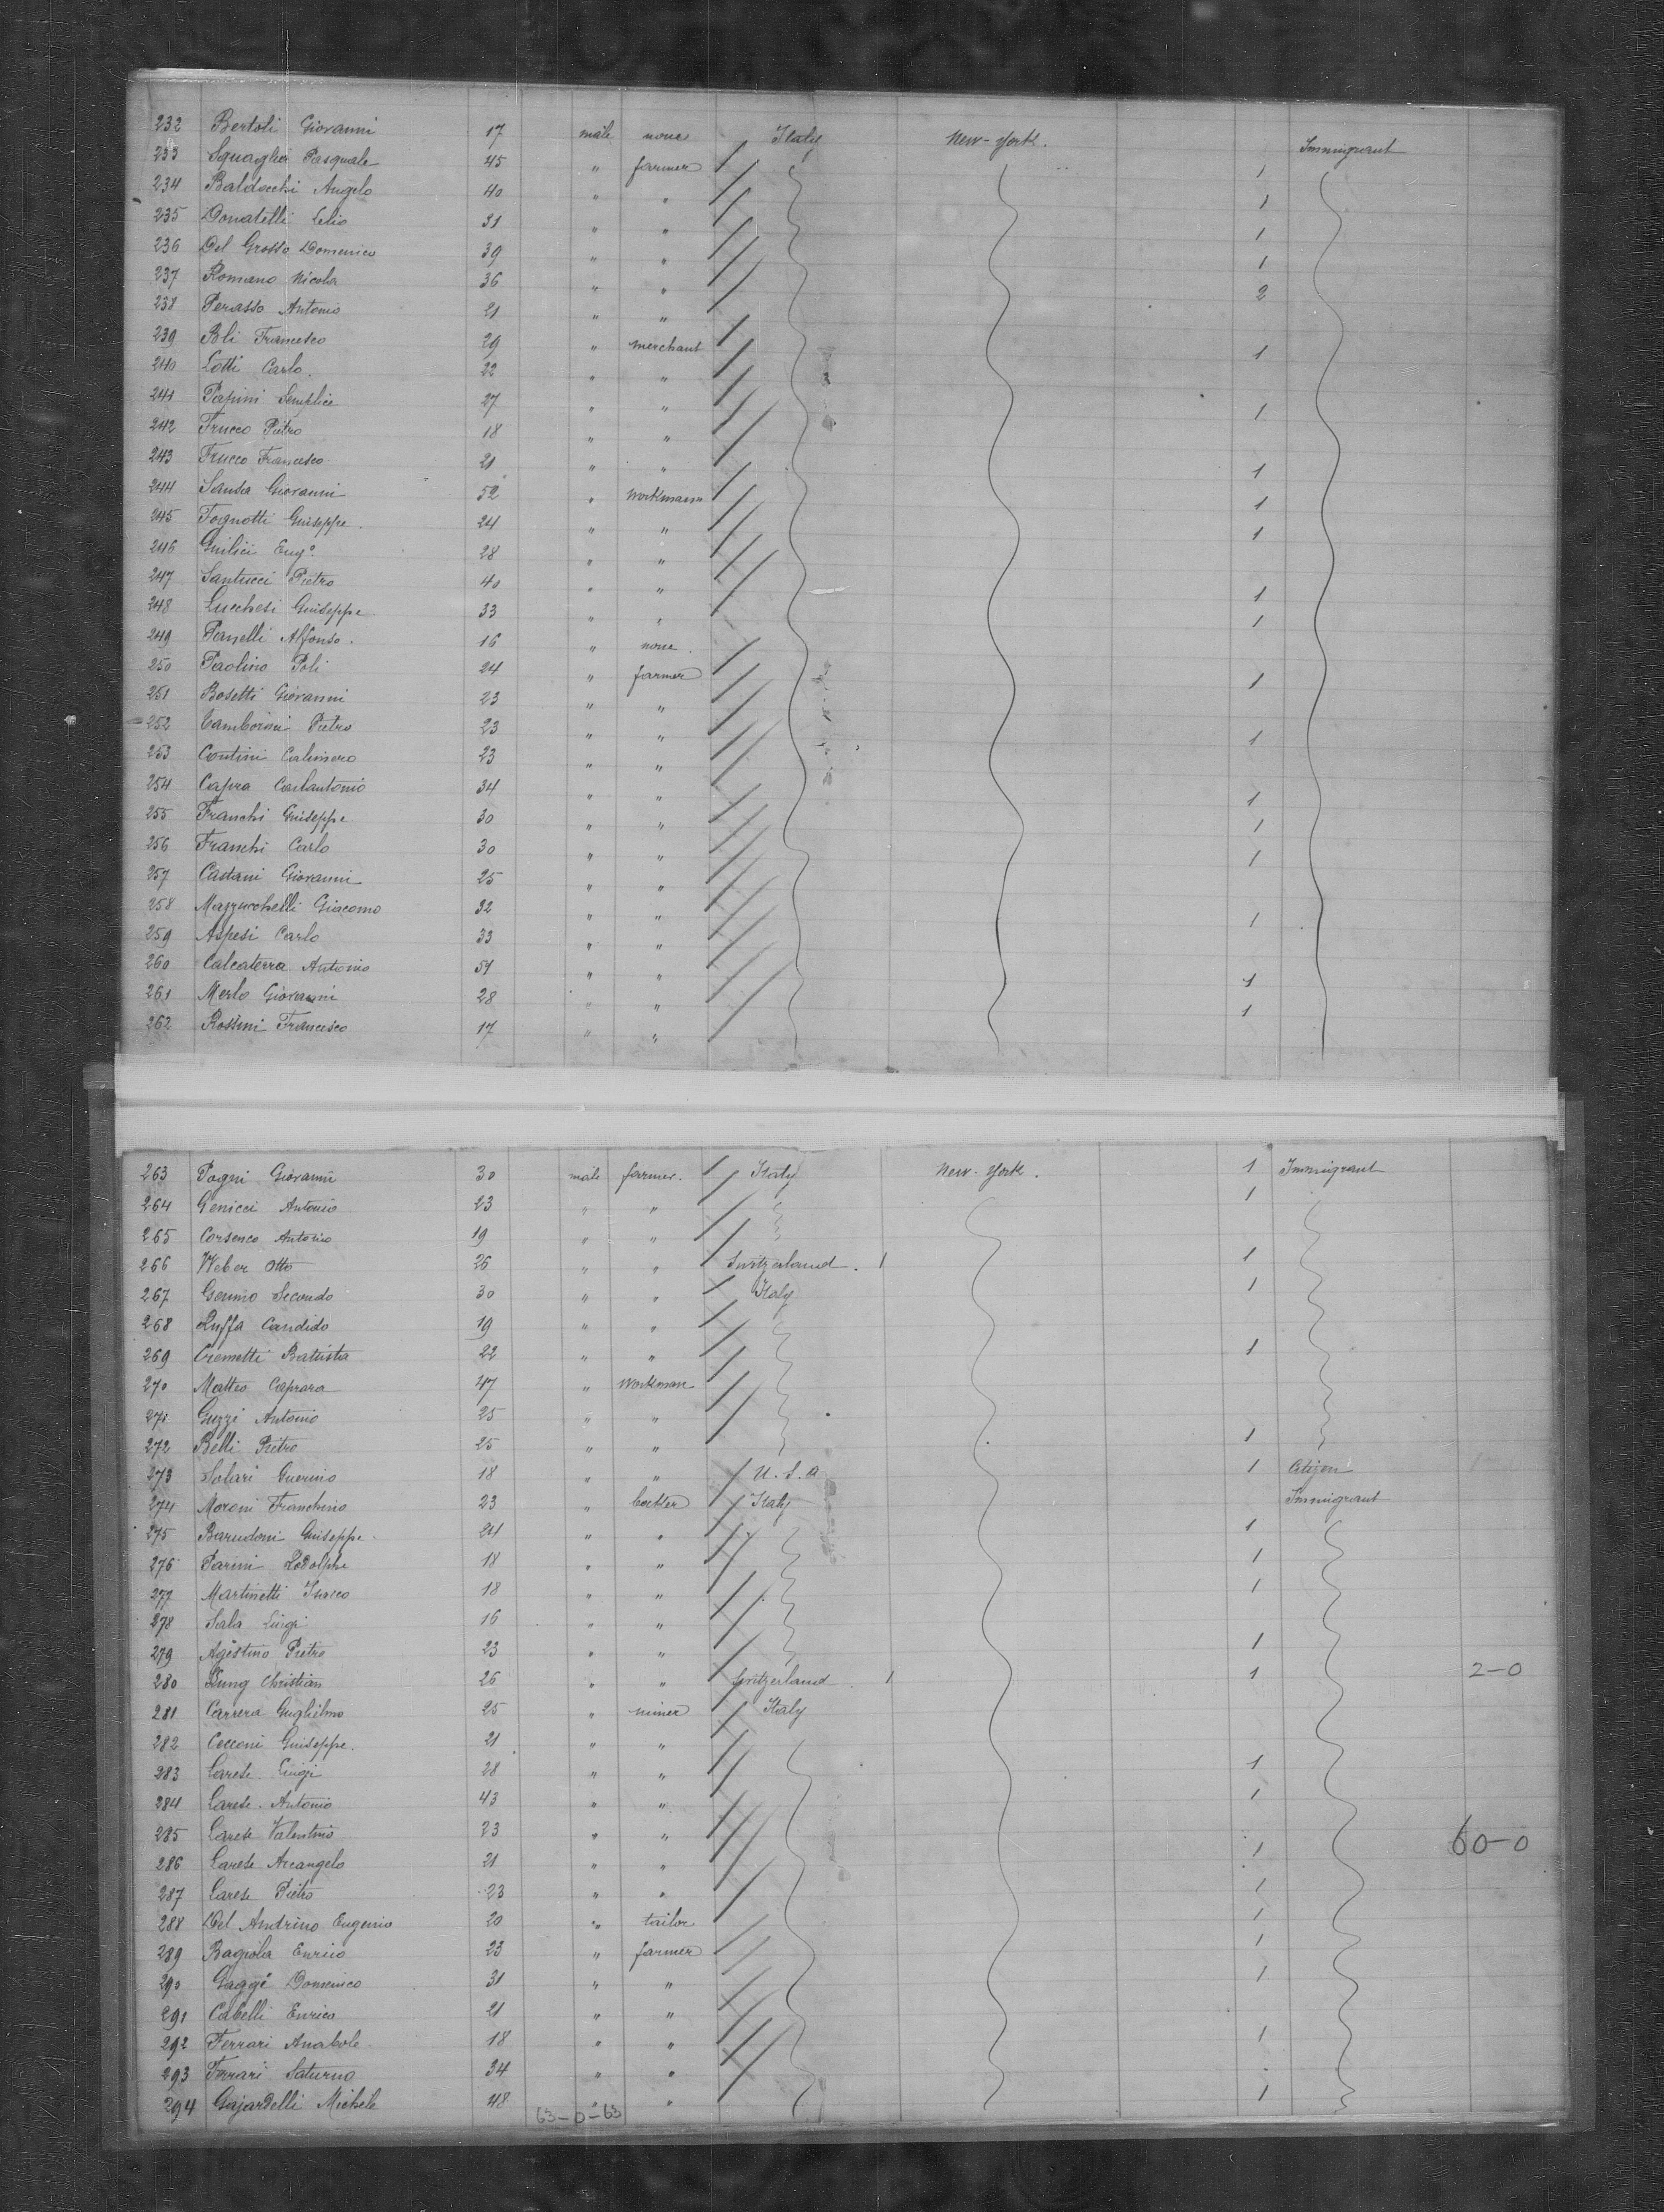 232 Bertoli Giovanni 17 male none Italy New-York. Immigrant
233 Squaglia Pasquale 45 " farmer 1
234 Baldocchi Angelo 40 " " 1
235 Donatelli Lelio 31 " " 1
236 Del Grosso Domenico 39 " " 1
237 Romano Nicola 36 " " 2
238 Perasso Antonio 21 " "
239 Poli Francesco 29 " merchant 1
240 Lotti Carlo. 22 " "
241 Papini Semplice 27 " " 1
242 Trucco Pietro 18 " "
243 Trucco Francesco 21 " " 1
244 Sansa Giovanni 52 " workmann 1
245 Tognotti Guiseppe. 24 " " 1
246 Guilici Eug° 28 " "
247 Santucci Pietro 40 " " 1
248 Lucchesi Guiseppe 33 " " 1
249 Panelli Alfonso. 16 " none.
250 Paolino Poli 24 " farmer 1
251 Bosetti Giovanni 23 " "
252 Tamborini Pietro 23 " " 1
253 Contini Calimero 23 " "
254 Capra Carlantonio 34 " " 1
255 Franchi Guiseppe 30 " " 1
256 Franchi Carlo 30 " " 1
257 Castani Giovanni 25 " "
258 Mazzucchelli Giacomo 32 " " 1
259 Aspesi Carlo 33 " "
260 Calcaterra Antonio 51 " " 1
261 Merlo Giovanni 28 " " 1
262 Rossini Francesco 17 " "
263 Pogni Giovanni 30 male farmer. Italy New-York. 1 Immigrant
264 Genicci Antonio 23 " " 1
265 Corsenco Antonio 19 " "
266 Weber Otto 26 " " Switzerland. 1 1
267 Gemmo Secondo 30 " " Italy 1
268 Ruffa Candido 19 " "
269 Cremetti Battista 22 " " 1
270 Matteo Caprara 47 " workman
271 Guzzi Antonio 25 " "
272 Belli Pietro 25 " " 1
273 Solari Guerino 18 " " U.S.A 1 Citizen
274 Moroni Franchino 23 " Italy Immigrant
275 Barudoni Guiseppe 24 " " 1
276 Parini Rodolphe 18 " " 1
277 Martinetti Isacco 18 " " 1
278 Sala Luigi 16 " "
279 Agostino Pietro 23 " " 1
280 Christian 26 " " Switzerland 1 1 2-0
281 Carrera Guglielmo 25 " miner Italy
282 Cecconi Guiseppe. 21 " "
283 Carese Luigi 28 " " 1
284 Carese. Antonio 43 " " 1
285 Carese Valentino 23 " " 60-0
286 Carese Arcangelo 21 " " 1
287 Carese Pietro 23 " " 1
288 Del Andrino Eugenio 20 " tailor 1
289 Bagiola Enrico 23 " farmer 1
290 Gaggi Domenico 31 " " 1
291 Cabelli Enrico 21 " "
292 Ferrari Anabole 18 " " 1
293 Ferrari Saturno 34 " "
294 Gajardelli Michele 48 " " 1
63-0-63